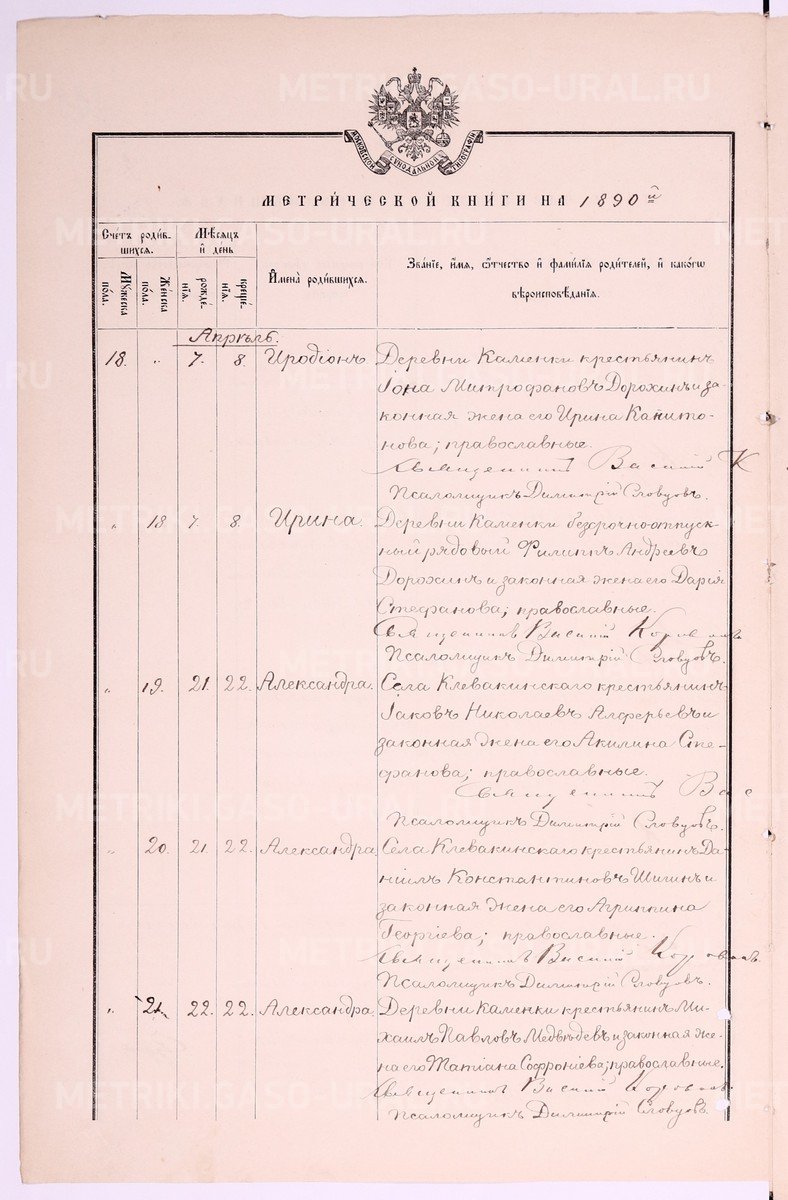 МОСКОВСКОЙ СѴНОДАЛЬНОЙ ТИПОГРАФІИ
МЕТРИ́ЧЕСКОЙ КНИ́ГИ НА 1890 й
Сче́тъ роди́вшихся.
Мѣ́сяцъ и҆ де́нь
И҆мена̀ роди́вшихся.
Зва́нїе, и҆́мя, ѻ҆́тчество и҆ фами́лїя роди́телей, и҆ како́гѡ вѣроисповѣ́данїя.
Мꙋ́жеска по́ла.
Же́нска по́ла.
рожде́нїя.
креще́нїя.
Апрѣль.
18. " 7. 8. Иродіонъ. Деревни Каменки крестьянинъ
Іона Митрофановъ Дорохинъ и за-
конная жена его Ирина Капито-
нова; православные.
Священникъ Василій К
Псаломщикъ Димитрій Словцовъ.
" 18 7. 8. Ирина. Деревни Каменки безсрочно-отпуск-
ный рядовый Филиппъ Андреевъ
Дорохинъ и законная жена его Дарія
Стефанова; православные.
Священникъ Василій
Псаломщикъ Димитрій Словцовъ.
" 19. 21. 22. Александра. Села Клевакинскаго крестьянинъ
Іаковъ Николаевъ Алферьевъ и
законная жена его Акилина Сте-
фанова; православные.
Священникъ Вас
Псаломщикъ Димитрій Словцовъ.
" 20. 21. 22. Александра. Села Клевакинскаго крестьянинъ Да-
ніилъ Константиновъ Шигинъ и
законная жена его Агриппина
Георгіева; православные.
Священникъ Василій
Псаломщикъ Димитрій Словцовъ.
" 21. 22. 22. Александра. Деревни Каменки крестьянинъ Ми-
хаилъ Павловъ Медвѣдевъ и законная же-
на его Татіана Софроніева; православные.
Священникъ Василій
Псаломщикъ Димитрій Словцовъ.
METRIKI.GASO-URAL.RU